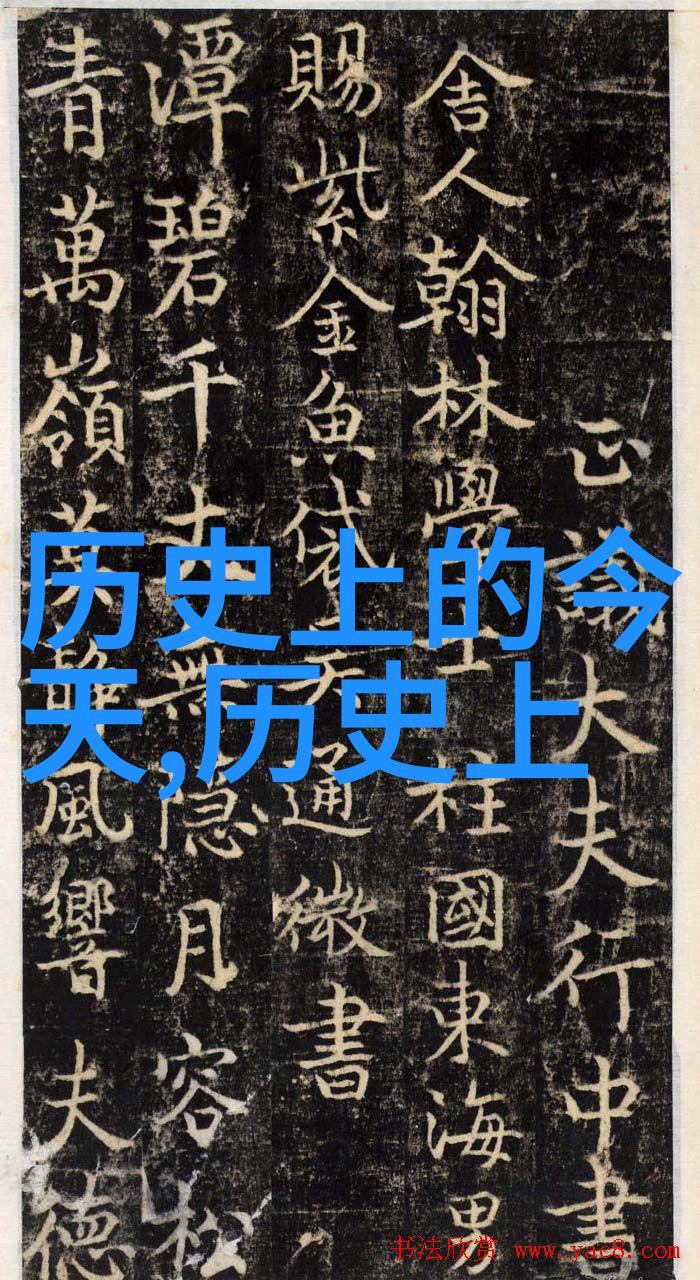 正議大夫行中書
舍人翰林學士柱國東海男
賜紫金魚袋吴通微書
潭碧千丈無隐月容松
青萬嶺葉静風響夫德
历史上的今
天,历史上
书法欣赏 www.yac8.com